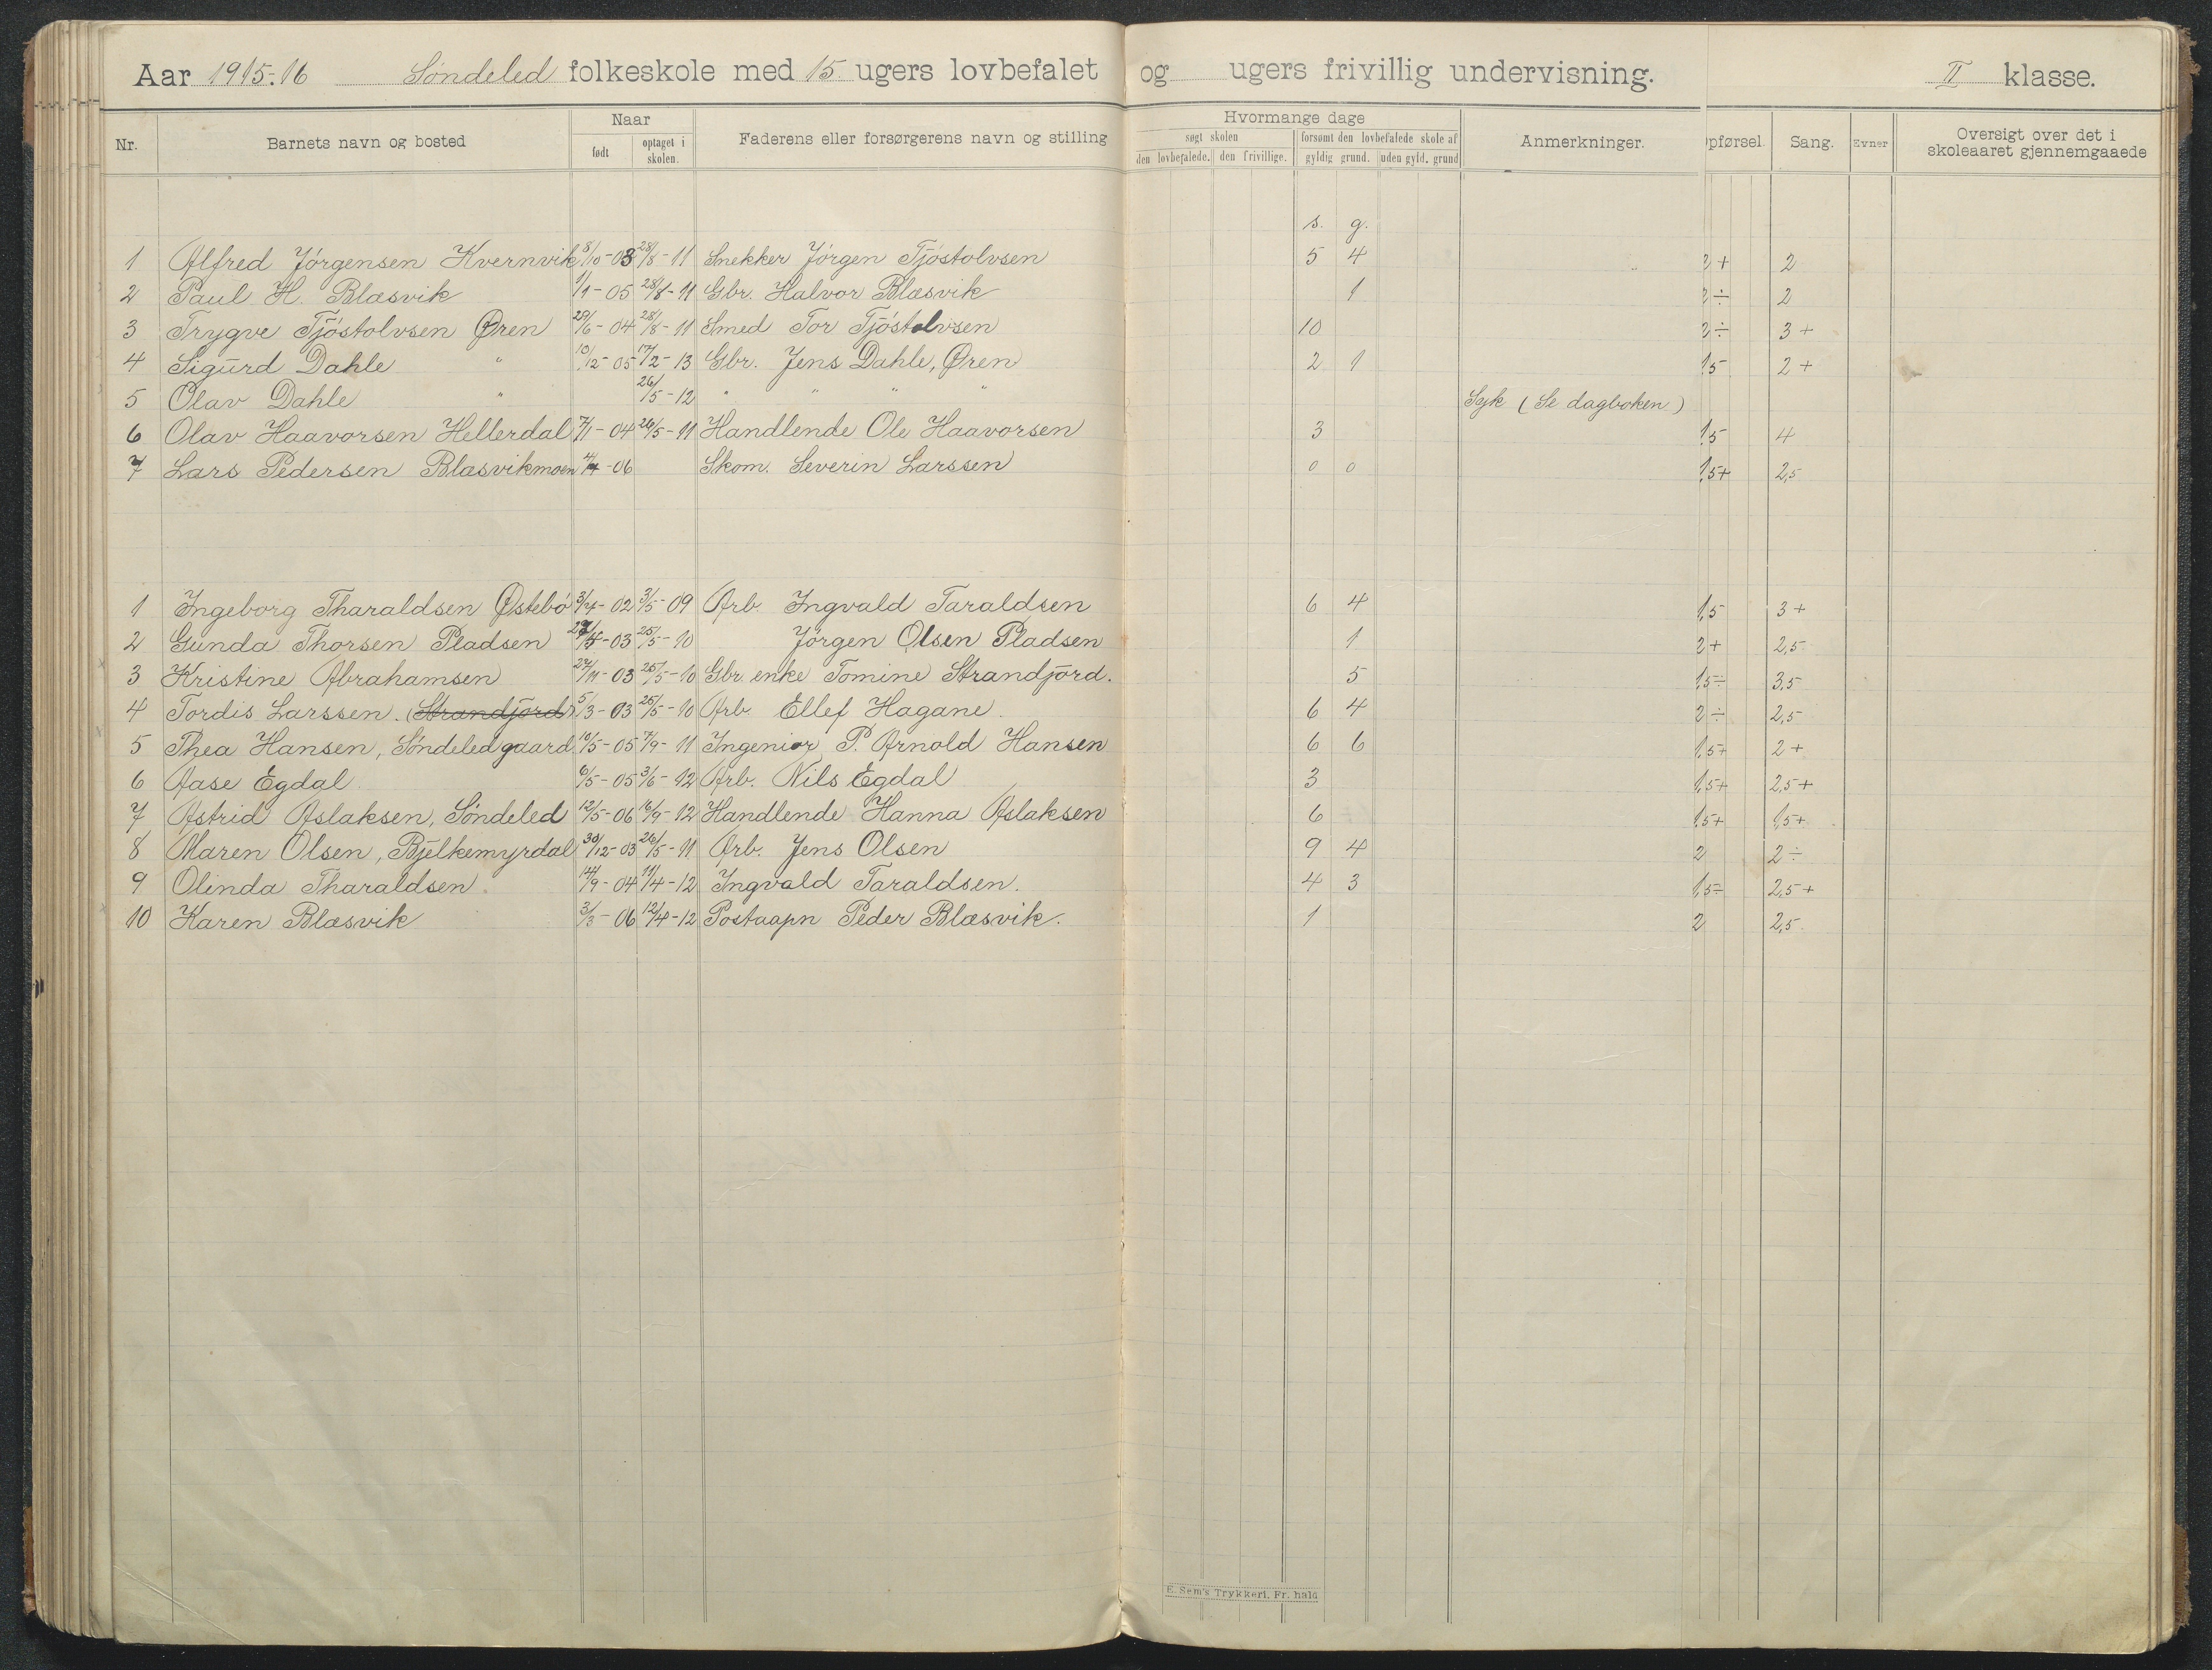 Aar 1915-16 Søndeled folkeskole med 15 ugers lovbefalet og ugers frivillig undervisning. II klasse.
Nr. Barnets navn og bosted Naar født optaget i skolen. Faderens eller forsørgerens navn og stilling Hvormange dage søgt skolen den lovbefalede. den frivillige. forsømt den lovbefalede skole af gyldig grund. uden gyld. grund Anmerkninger. pførsel. Sang. Evner Oversigt over det i skoleaaret gjennemgaaede
s. g.
1 Alfred Jørgensen Kvernvik 8/10-03 28/8-11 Snekker Jørgen Tjøstolvsen 5 4 2+ 2
2 Paul H. Blæsvik 1/1-05 28/8-11 Gbr. Halvor Blæsvik 1 2÷ 2
3 Trygve Tjøstolvsen Øren 29/6-04 28/8-11 Smed Tor Tjøstolvsen 10 2÷ 3+
4 Sigurd Dahle " 10/12-05 17/2-13 Gbr. Jens Dahle, Øren 2 1 1,5 2+
5 Olav Dahle " 26/5-12 " " " " Syk (Se dagboken)
6 Olav Haavorsen Hellerdal 7/11-04 26/5-11 Handlende Ole Haavorsen 3 1,5 4
7 Lars Pedersen Blæsvikmoen 4/4-06 Skom. Severin Larssen 0 0 1,5+ 2,5
1 Ingeborg Tharaldsen Østebø 3/4-02 3/5-09 Arb. Ingvald Taraldsen 6 4 1,5 3+
2 Gunda Thorsen Pladsen -03 25/5-10 Jørgen Olsen Pladsen 1 2+ 2,5
3 Kristine Abrahamsen 27/11-03 25/5-10 Gbr. enke Tomine Strandjord. 5 1,5÷ 3,5
4 Tordis Larssen. (Strandjord) 5/3-03 25/5-10 Arb. Ellef Hagane. 6 4 2÷ 2,5
5 Thea Hansen, Søndeledgaard 10/5-05 7/9-11 Ingeniør P. Arnold Hansen 6 6 1,5+ 2+
6 Aase Egdal 6/5-05 3/6-12 Arb. Nils Egdal 3 1,5+ 2,5+
7 Astrid Aslaksen, Søndeled 12/5-06 16/9-12 Handlende Hanna Aslaksen 6 1,5+ 1,5+
8 Maren Olsen, Bjelkemyrdal 30/12-03 26/5-11 Arb. Jens Olsen 9 4 2 2÷
9 Olinda Tharaldsen. 14/9-04 11/4-12 Ingvald Taraldsen. 4 3 1,5÷ 2,5+
10 Karen Blæsvik 3/3-06 12/4-12 Postaapn Peder Blæsvik. 1 2 2,5.
E. Sem's Trykkeri, Fr. hald